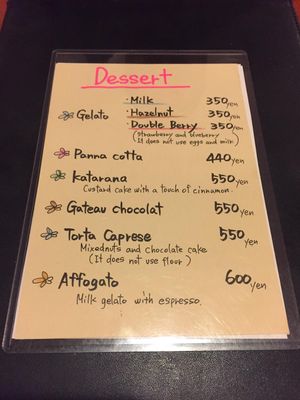 Dessert
・Milk 350yen
Gelato ・Hazelnut 350yen
・Double Berry 350yen
(strawberry and blueberry
It does not use eggs and milk)
Panna cotta 440yen
Katarana 550yen
Custard cake with a touch of cinnamon.
Gateau chocolat 550yen
Torta Caprese 550yen
Mixednuts and chocolate cake
(It does not use floor)
Affogato 600yen
Milk gelato with espresso.